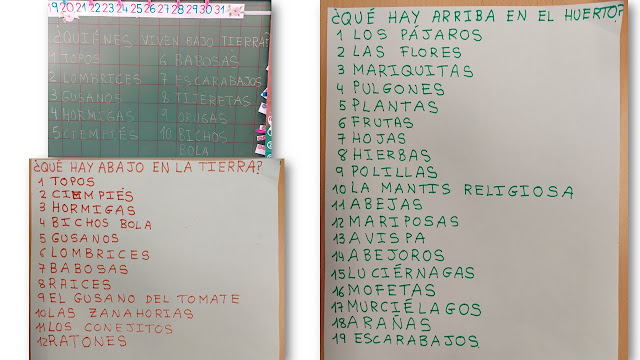 19 20 21 22 23 24 25 26 27 28 29 30 31
¿QUIÉNES VIVEN BAJO TIERRA?
1 TOPOS
2 LOMBRICES
3 GUSANOS
4 HORMIGAS
5 CIEMPIÉS
6 BABOSAS
7 ESCARABAJOS
8 TIJERETAS
9 ORUGAS
10 BICHOS
BOLA
¿QUÉ HAY ABAJO EN LA TIERRA?
1 TOPOS
2 CIEMPIÉS
3 HORMIGAS
4 BICHOS BOLA
5 GUSANOS
6 LOMBRICES
7 BABOSAS
8 RAICES
9 EL GUSANO DEL TOMATE
10 LAS ZANAHORIAS
11 LOS CONEJITOS
12 RATONES
¿QUÉ HAY ARRIBA EN EL HUERTO?
1 LOS PÁJAROS
2 LAS FLORES
3 MARIQUITAS
4 PULGONES
5 PLANTAS
6 FRUTAS
7 HOJAS
8 HIERBAS
9 POLILLAS
10 LA MANTIS RELIGIOSA
11 ABEJAS
12 MARIPOSAS
13 AVISPA
14 ABEJOROS
15 LUCIÉRNAGAS
16 MOFETAS
17 MURCIÉLAGOS
18 ARAÑAS
19 ESCARABAJOS